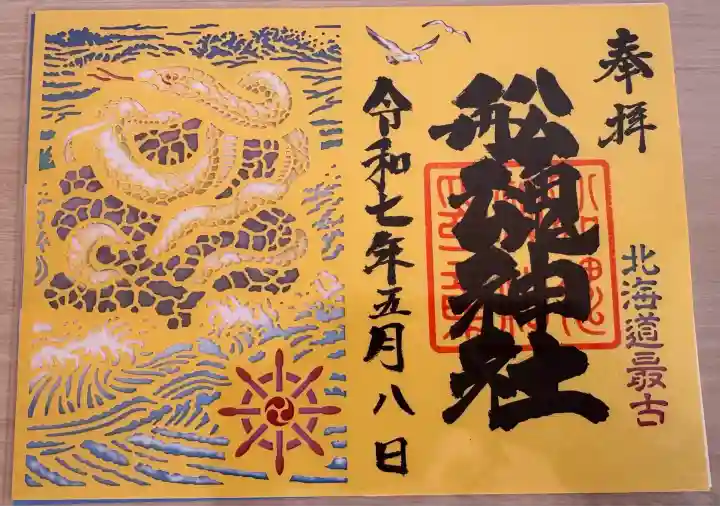 奉拝
北海道最古
船魂神社
令和七年五月八日